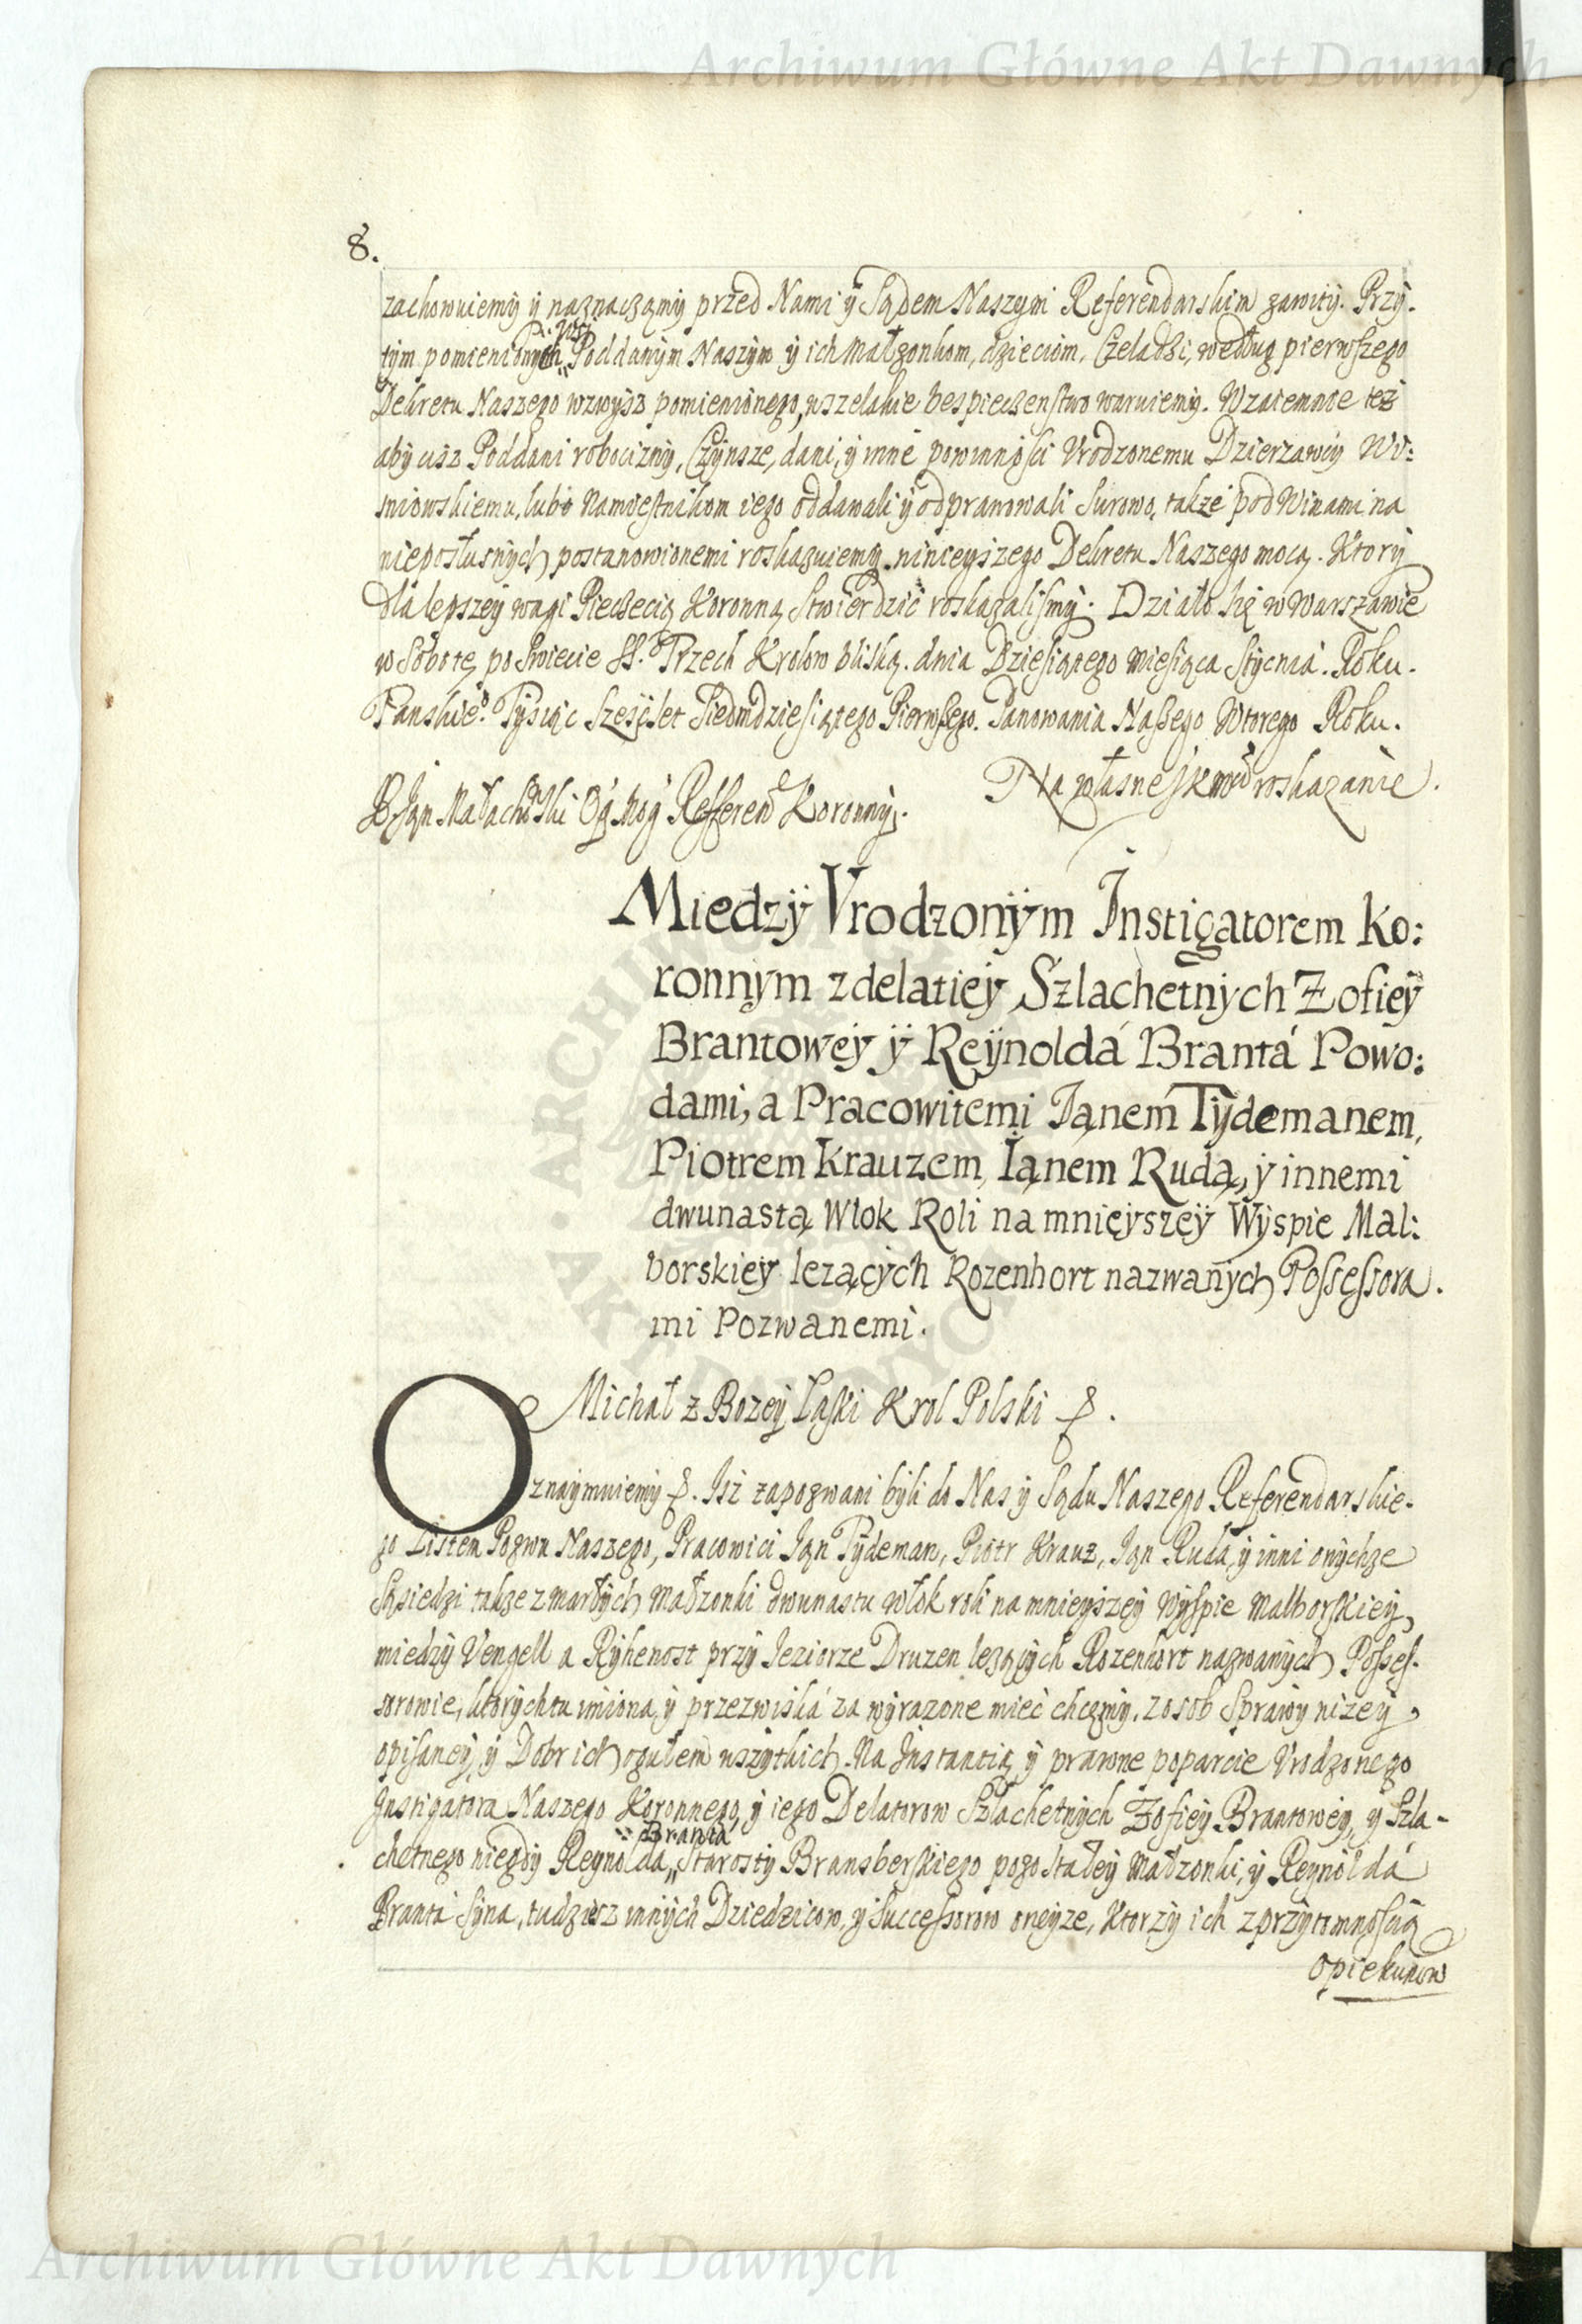 Archiwum Główne Akt Dawnych
8.
zachowuiemy y naznaczamy przed Nami y Sądem Naszym Referendarskim zawity. Przy-
tym pomienionym Poddanym Naszym y ich Małzonkom, dzieciom, Czeladzi, według pierwszego
Dekretu Naszego wzwysz pomienionego, wszelakie bespieczenstwo waruiemy. Wzaiemnie tez
aby cisz Poddani robocizny, Czynsze, dani, y inne powinnosci Vrodzonemu Dzierzawcy Wi:
sniowskiemu, lubo Namiestnikom iego oddawali y odprawowali surowo, także pod Winami na
nieposłusnych postanowionemi roskazuiemy ninieyszego Dekretu Naszego mocą. Ktory
dla lepszey wagi Pieczecią Koronną stwierdzić roskazalismy. Działo się w Warszawie
w Sobotę po Swiecie SS. Trzech Krolow bliską. dnia Dziesiątego Miesiąca Stycnia. Roku.
Panskieo. Tysiąc Szescset Siedmdziesiątego Pierwszego. Panowania Naszego Wtorego Roku.
Na własne JKMci roskazanie.
Jan Małachowski Refferend Koronny.
Miedzy Vrodzonym Instigatorem Ko:
ronnym z delatiey Szlachetnych Zofiey
Brantowey y Reynoldá Brantá Powo:
dami, a Pracowitemi Ianem Tydemanem,
Piotrem Krauzem, Ianem Rudą, y innemi
dwunastą Wlok Roli na mnieyszey Wyspie Mal:
borskiey lezących Rozenhort nazwanych Possessora.
mi Pozwanemi.
Michał z Bozey Łaski Krol Polski &.
Oznaymuiemy &. Isz zapozwani byli do Nas y Sądu Naszego Referendarskie-
go Listem Pozwu Naszego, Pracowici Ian Tydeman, Piotr Krauz, Ian Ruda, y inni onychze
Sąsiedzi takze zmarłych Małzonki dwunastu włok roli na mnieyszey Wyspie Malborskiey,
miedzy Vengell a Ryhenost przy Ieziorze Druzen lezących Rozenhort nazwanych Posses-
sorowie, ktorych tu imiona, y przezwiská za wyrazone mieć chcemy. z osob Sprawy nizey
opisaney, y Dobr ich ogułem wszytkich. Na Instantią y prawne poparcie Vrodzonego
Instigatora Naszego Koronnego, y iego Delatorow Szlachetnych Zofiey Brantowey, y Szla-
Brantá
chetnego niegdy Reynoldá, Starosty Bransberskiego pozostałey Małzonki, y Reynoldá
Brantá Syna, tudziesz innych Dziedzicow, y Successorow oneyze, Ktorzy ich z przytomnoscią
Opiekunow
Archiwum Główne Akt Dawnych